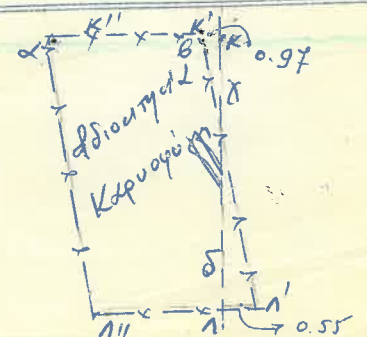 κ'' κ' κ
α β γ
0.97
ιδιοκτησία
Καρυοφύλλη
δ
Λ'' Λ Λ'
0.55